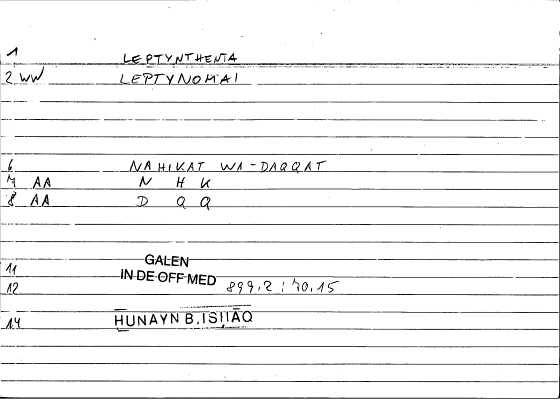 1 LEPTYNTHENTA
2 WW LEPTYNOMAI
6 NAHIKAT WA-DAQQAT
7 AA N H K
8 AA D Q Q
GALEN
11 IN DE OFF MED
12 899.2 : 70.15
14 HUNAYN B. ISHAQ